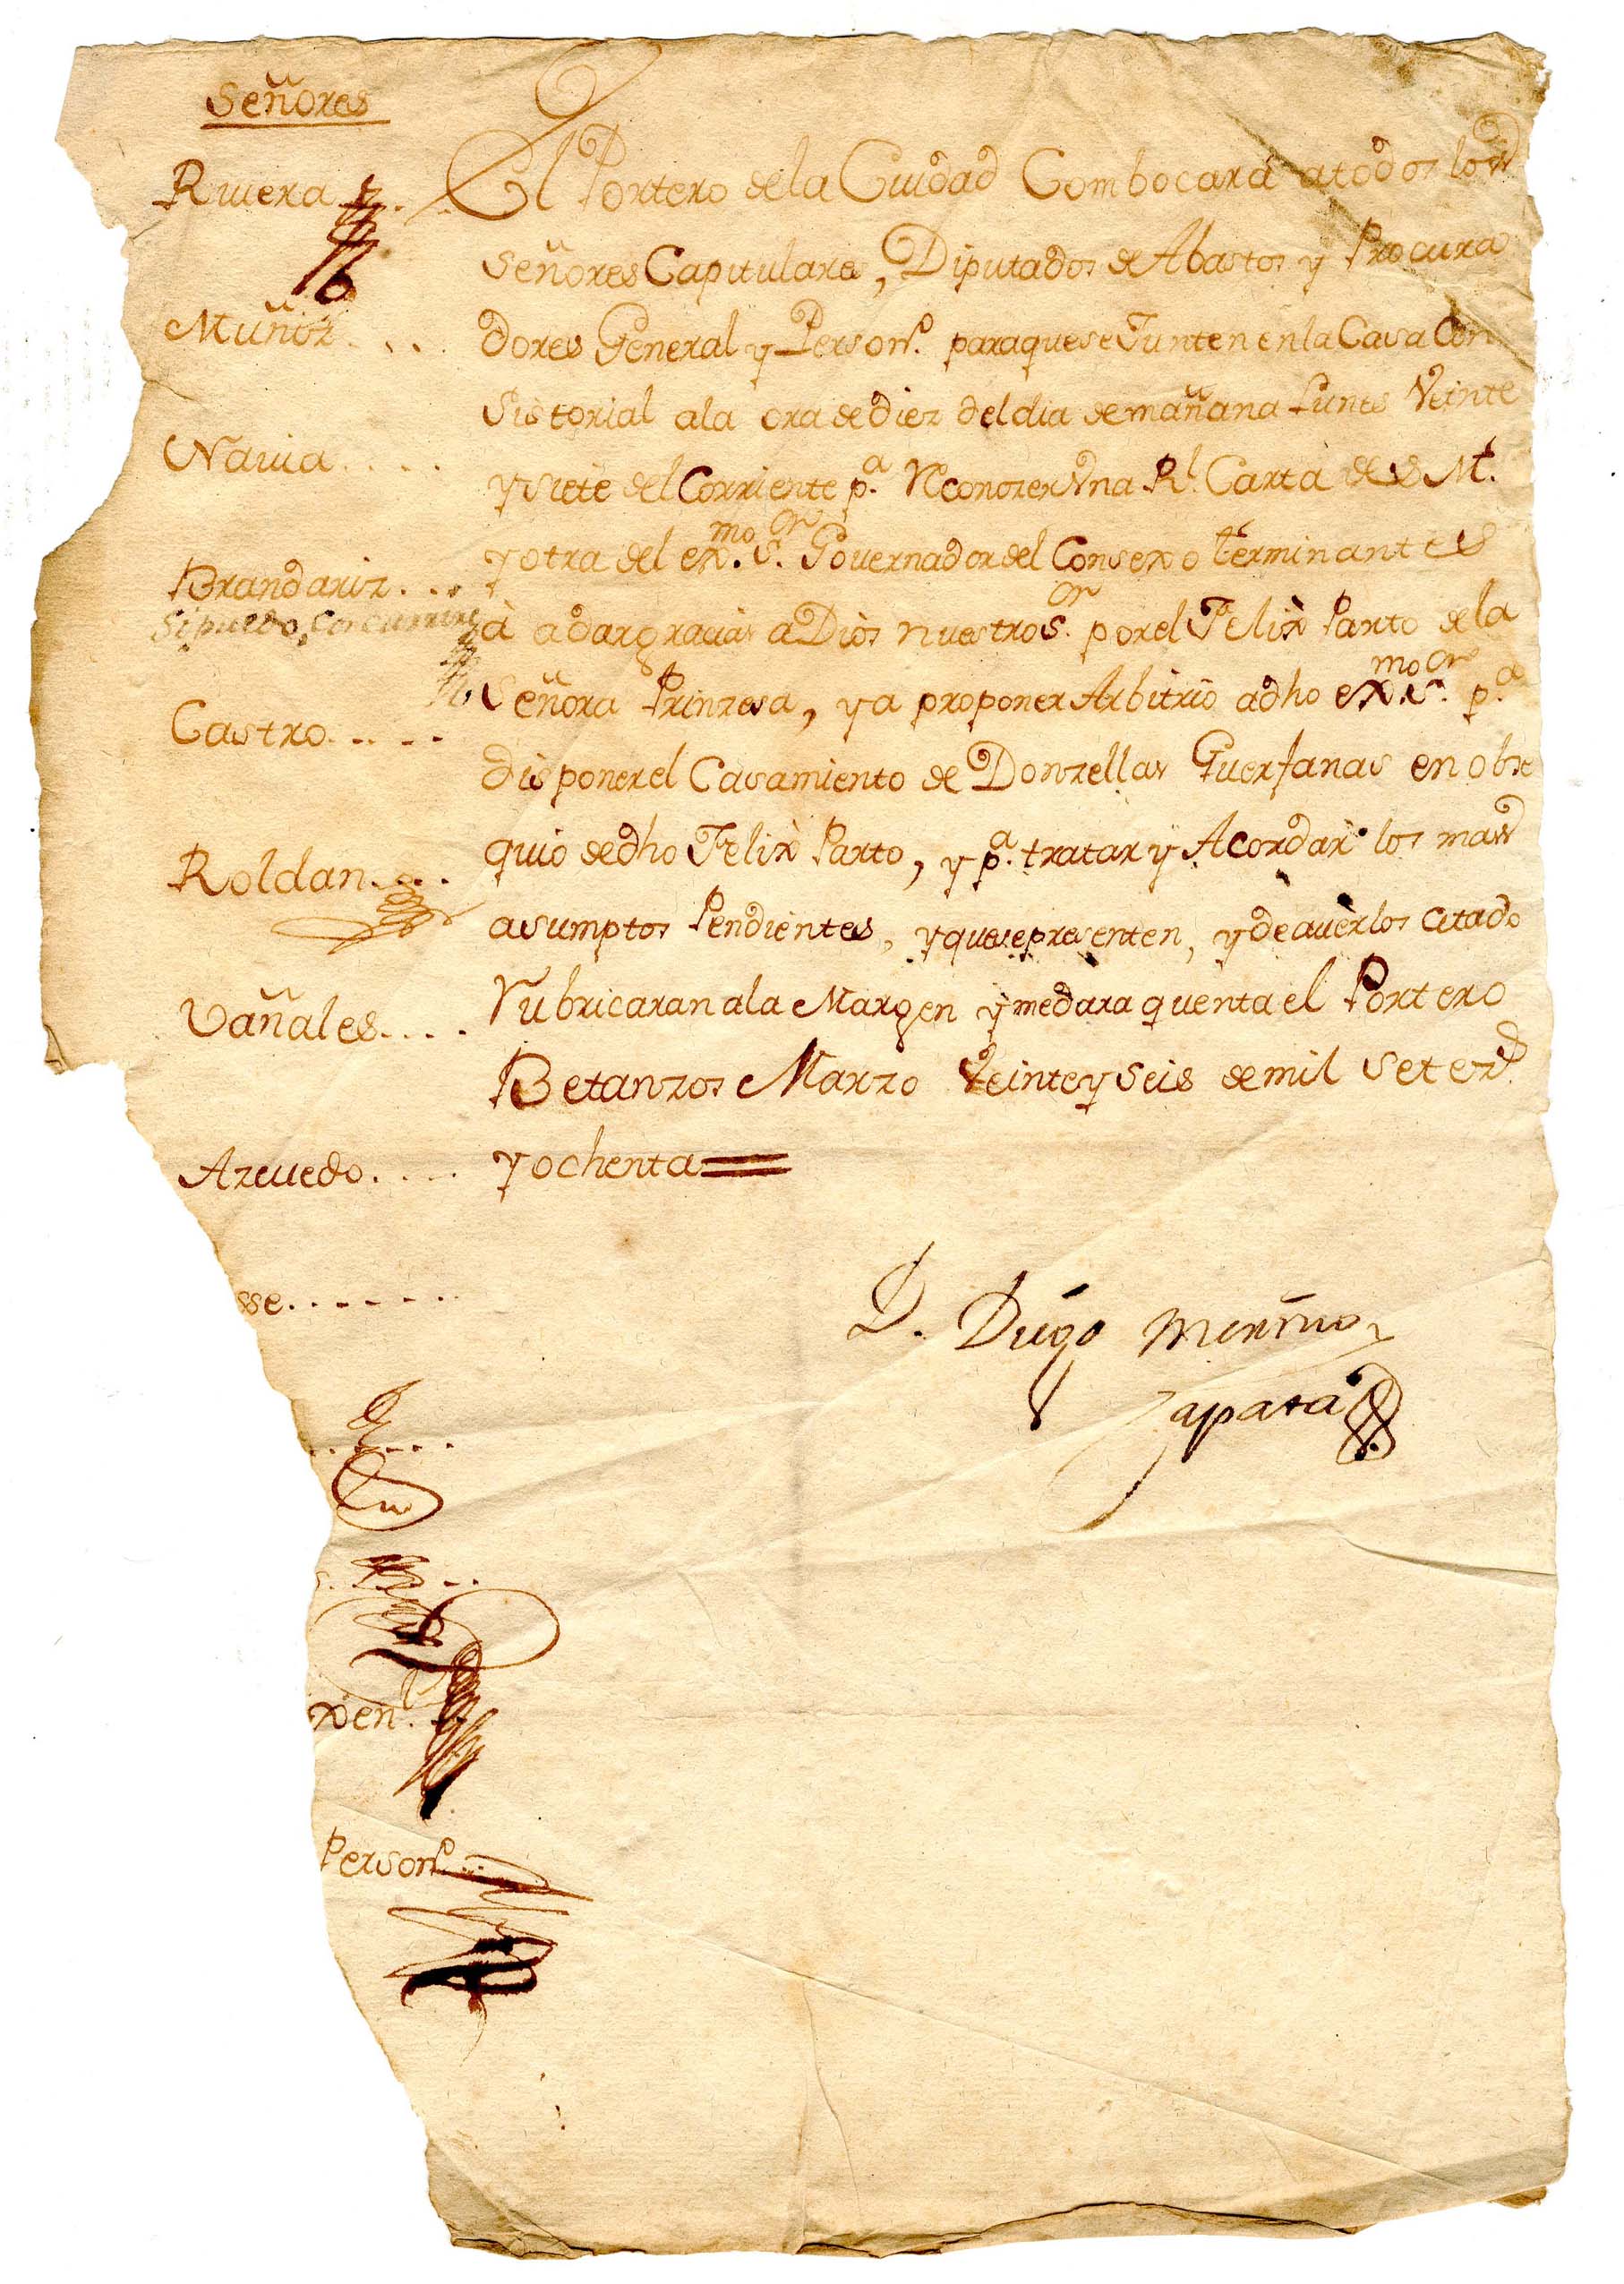 Señores
Riuera
Muñoz....
Nauia....
Brandariz...
Si puedo, Concurrire
Castro.....
Roldan....
Vañales....
Azeuedo....
sse.......
xen.l
Person.o
El Portero de la Ciudad Combocará a todos los
Señores Capitulares, Diputados de Abastos y Procura
dores General y Person.o para que se Junten en la Casa Con
Sistorial a la ora de diez del dia de mañana Lunes Veinte
y siete del Corriente p.a Reconozer Vna R.l Carta de S. M.
y otra del ex.mo S.or Gouernador del Consexo terminantes
à a dar gracias a Dios nuestro S.or por el Felix Parto de la
Señora Prinzesa, y a proponer Arbitrio a dho ex.mo S.or p.a
disponer el Casamiento de Donzellas Guerfanas en obse
quio de dho Felix Parto, y p.a tratar y Acordar los mas
asumptos Pendientes, y que se presenten, y de auerlos Citado
Rubricaran a la Margen y me dara quenta el Portero
Betanzos Marzo Veinte y Seis de mil Setez.s
y ochenta=
D. Diego
Zapata